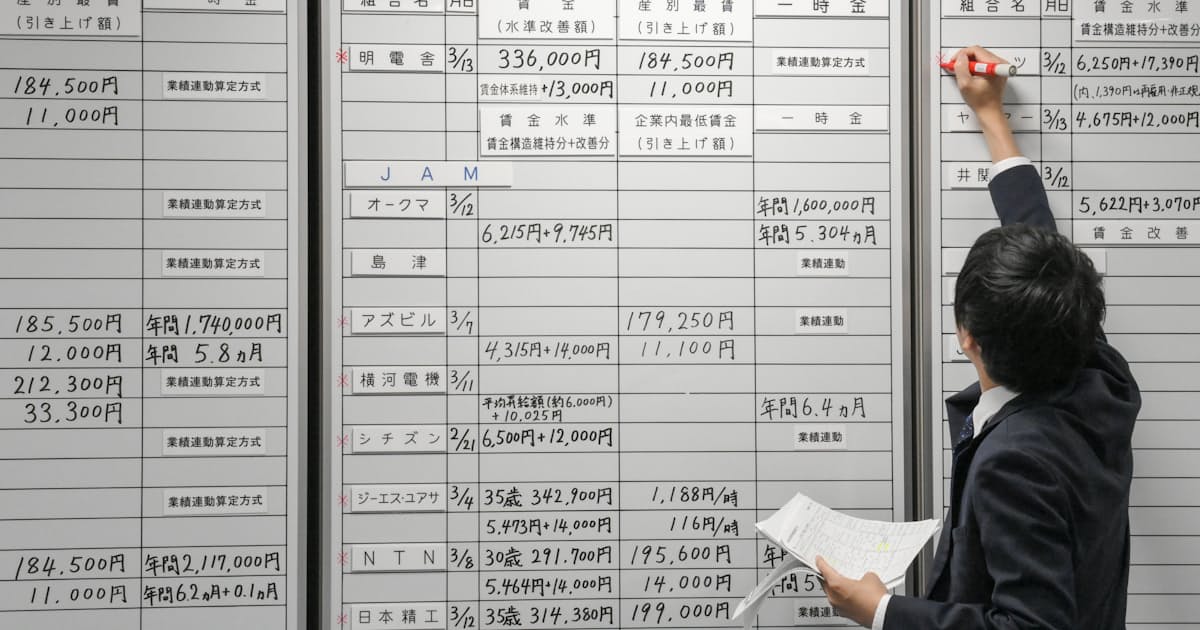 産 別 最 賃
(引き上げ額)
一 時 金
184,500円
業績連動算定方式
11,000円
業績連動算定方式
業績連動算定方式
185,500円
年間1,740,000円
12.000円
年間 5.8ヵ月
212,300円
業績連動算定方式
33,300円
業績連動算定方式
業績連動算定方式
184,500円
年間2,117,000円
11.000円
年間6.2ヵ月+0.1ヵ月
組 合 名
月日
賃 金
(水準改善額)
産 別 最 賃
(引き上げ額)
一 時 金
※
明 電 舎
3/13
336,000円
184,500円
業績連動算定方式
賃金体系維持+13,000円
11,000円
賃 金 水 準
賃金構造維持分+改善分
企業内最低賃金
(引き上げ額)
一 時 金
J A M
オークマ
3/12
年間1,600,000円
6,215円+9,745円
年間5.304ヵ月
島 津
業績連動
※
アズビル
3/7
179,250円
業績連動
4,315円+14,000円
11,100円
※
横河電機
3/11
平均昇給額(約6,000円)
+10,025円
年間6.4ヵ月
※
シチズン
2/21
6,500円+12,000円
業績連動
※
ジーエス・ユアサ
3/4
35歳 342,900円
1,188円/時
5.473円+14,000円
116円/時
※
N T N
3/8
30歳 291.700円
195,600円
5.464円+14,000円
14,000円
※
日本精工
3/12
35歳 314,380円
199,000円
組 合 名
月日
賃 金 水 準
賃金構造維持分+改善分
※
ツ
3/12
6,250円+17,390円
3/13
4,675円+12,000円
井関
3/12
5,622円+3,070円
賃 金 改 善